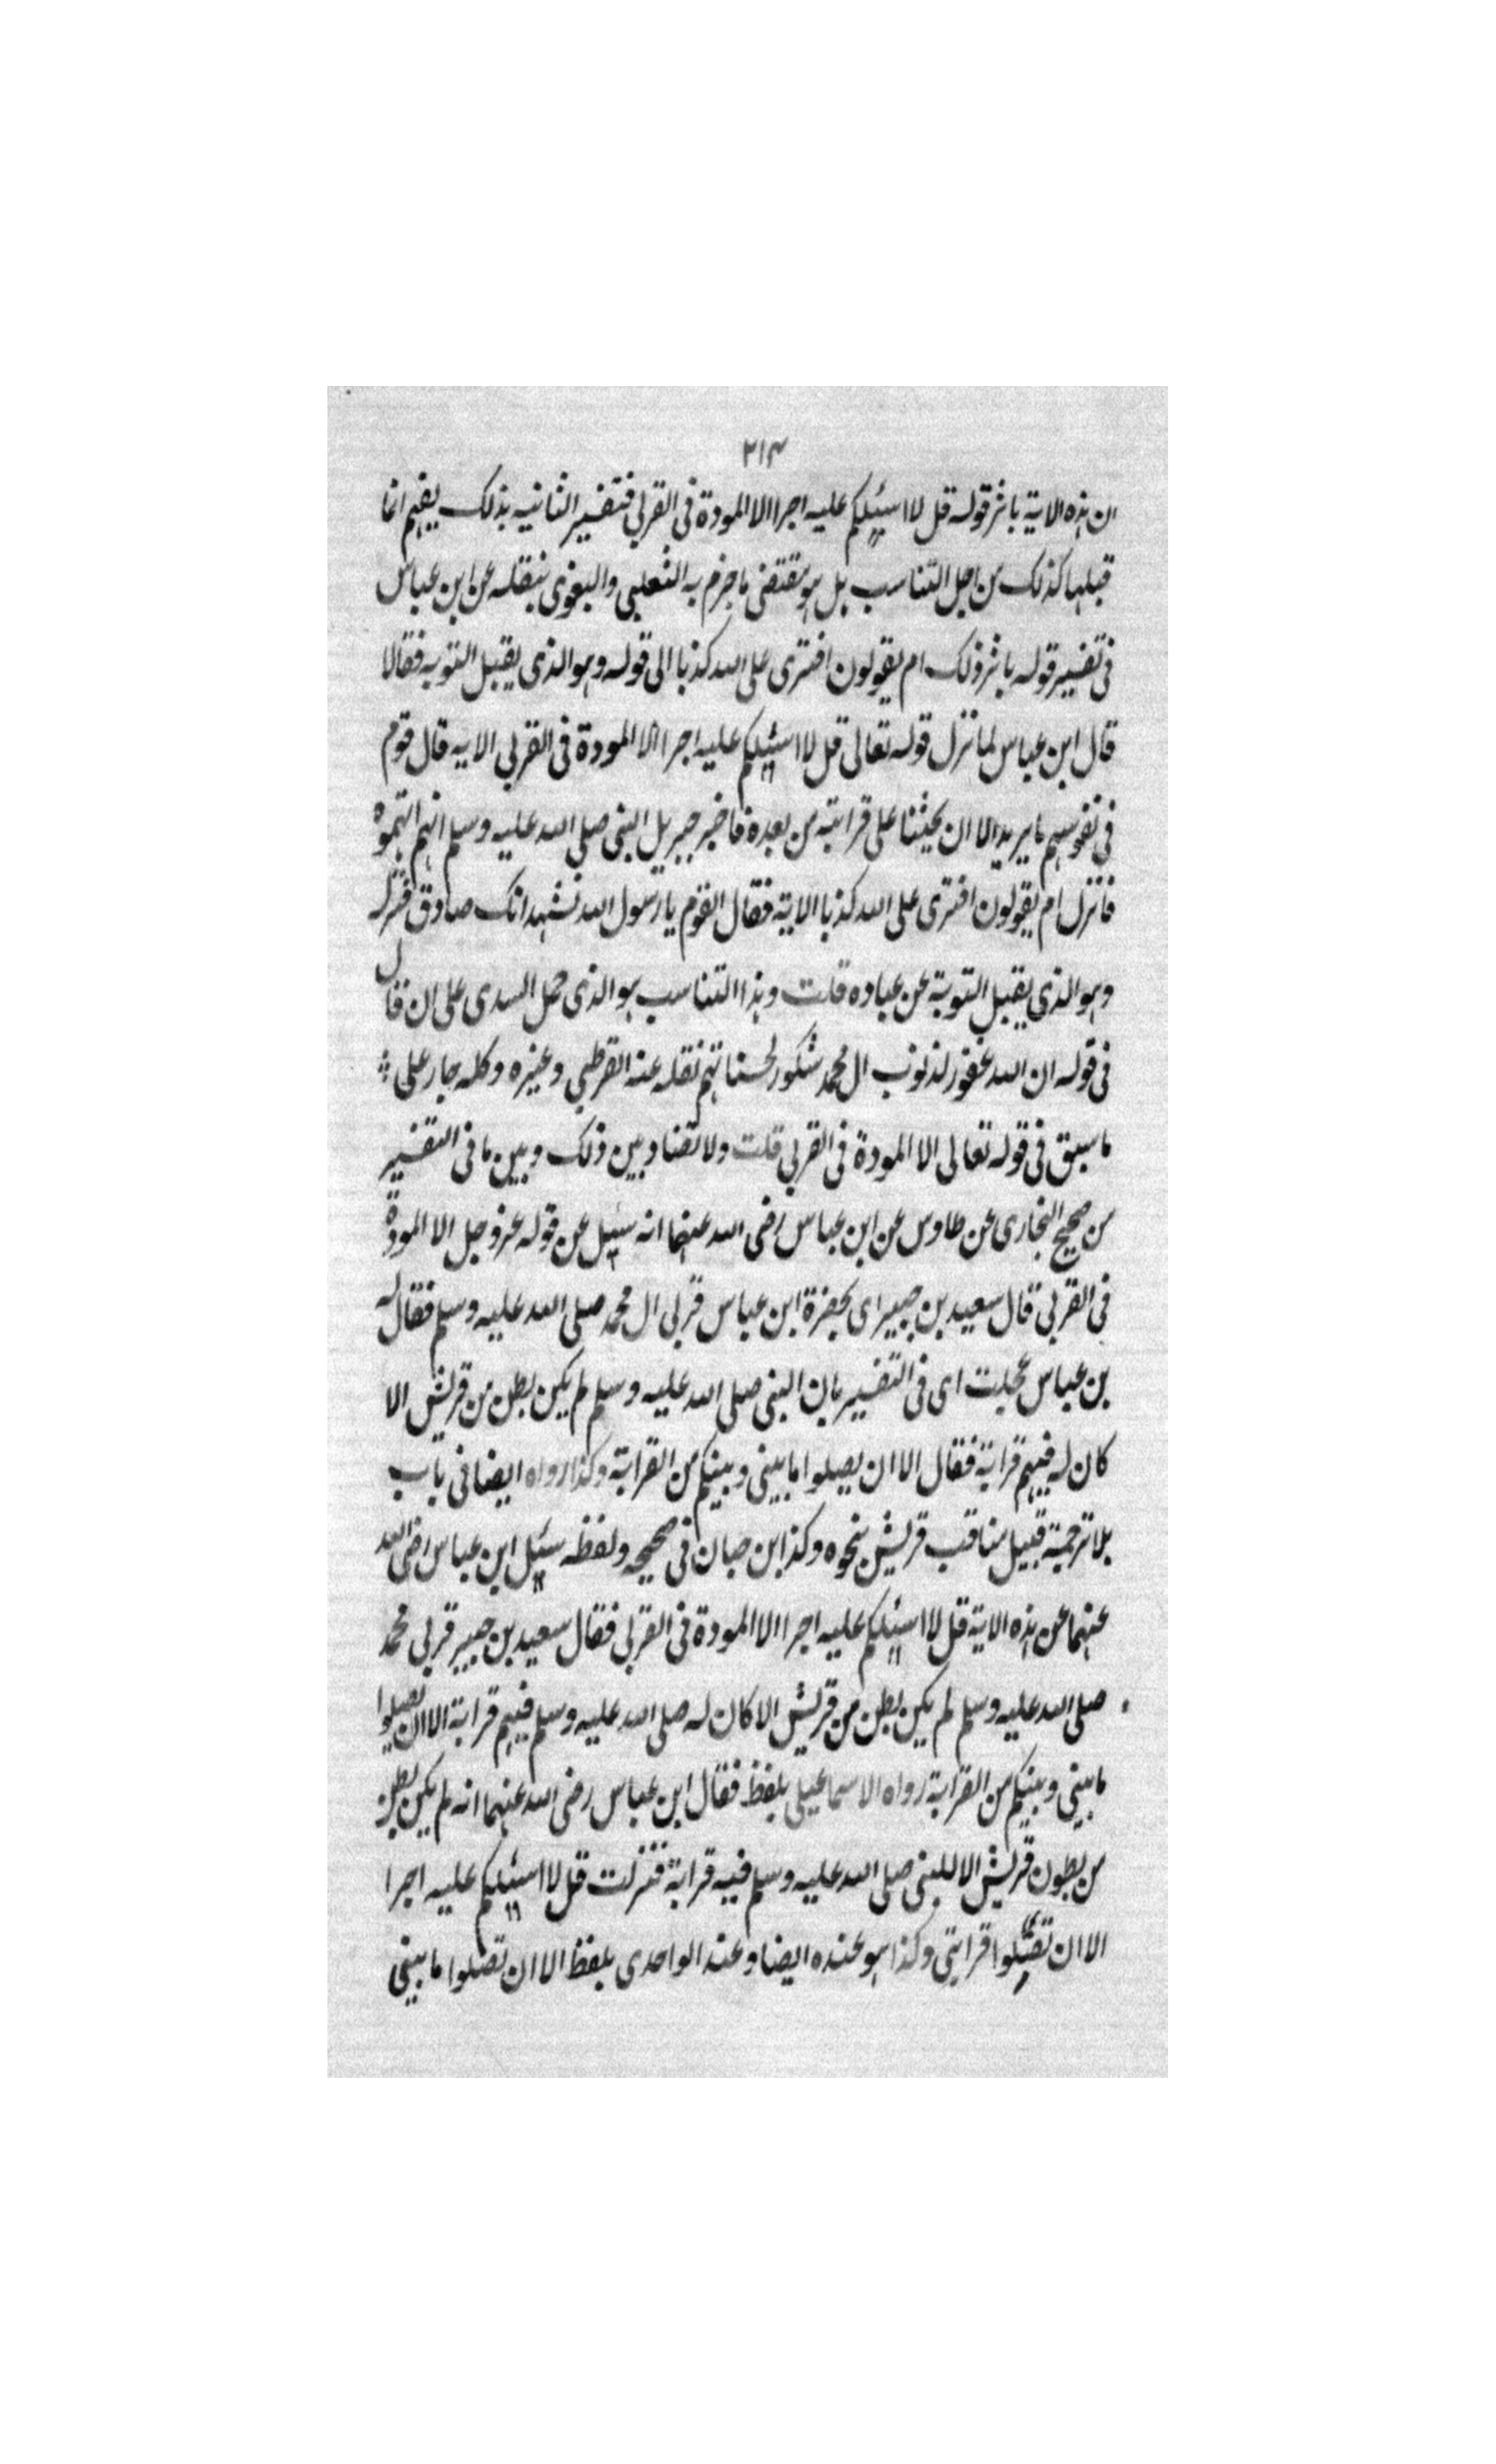 ٢١٣
ان هذه الاية باثر قوله قل لا اسئلكم عليه اجرا الا المودة فى القربى فتفسير الثانيه بذلك يفهم انما
قبلها كذلك من اجل التناسب بل هو مقتضى ما جزم به الثعلبى والبغوى بنقله عن ابن عباس
فى تفسير قوله باثر ذلك ام يقولون افترى على الله كذبا الى قوله وهو الذى يقبل التوبه فقالا
قال ابن عباس لما نزل قوله تعالى قل لا اسئيلكم عليه اجرا الا المودة فى القربى الايه قال قوم
فى نفوسهم ما يريد الا ان يحثنا على قرابته من بعده فاخبر جبريل النبى صلى الله عليه وسلم انهم اتهموه
فانزل ام يقولون افترى على الله كذبا الاية فقال القوم يا رسول الله نشهد انك صادق فنزل
وهو الذى يقبل التوبة عن عباده قلت وهذا التناسب هو الذى حمل السدى على ان قال
فى قوله ان الله غفور لذنوب ال محمد شكور لحسناتهم نقله عنه القرطبى وغيره وكله جار على
ما سبق فى قوله تعالى الا المودة فى القربى قلت ولا تضاد بين ذلك وبين ما فى التفسير
من صحيح البخارى عن طاوس عن ابن عباس رضى الله عنهما انه سئيل عن قوله عز وجل الا المودة
فى القربى قال سعيد بن جبير اى بحضرة ابن عباس قربى ال محمد صلى الله عليه وسلم فقال له
بن عباس عجلت اى فى التفسير بان النبى صلى الله عليه وسلم لم يكن بطن من قريش الا
كان له فيهم قرابة فقال الا ان يصلوا ما بينى وبينكم من القرابة وكذا رواه ايضا فى باب
بلا ترجمة قبيل مناقب قريش نحوه وكذا ابن حبان فى صحيحه ولفظه سئيل ابن عباس رضى الله
عنهما عن هذه الاية قل لا اسئيلكم عليه اجرا الا المودة فى القربى فقال سعيد بن جبير قربى محمد
صلى الله عليه وسلم لم يكن بطن من قريش الا كان له صلى الله عليه وسلم فيهم قرابة الا ان تصلوا
ما بينى وبينكم من القرابة رواه الاسماعيلى بلفظ فقال ابن عباس رضى الله عنهما انه لم يكن بطن
من بطون قريش الا للنبى صلى الله عليه وسلم فيه قرابة فنزلت قل لا اسئيلكم عليه اجرا
الا ان تصلوا قرابتى وكذا هو عنده ايضا وعند الواحدى بلفظ الا ان تصلوا ما بينى